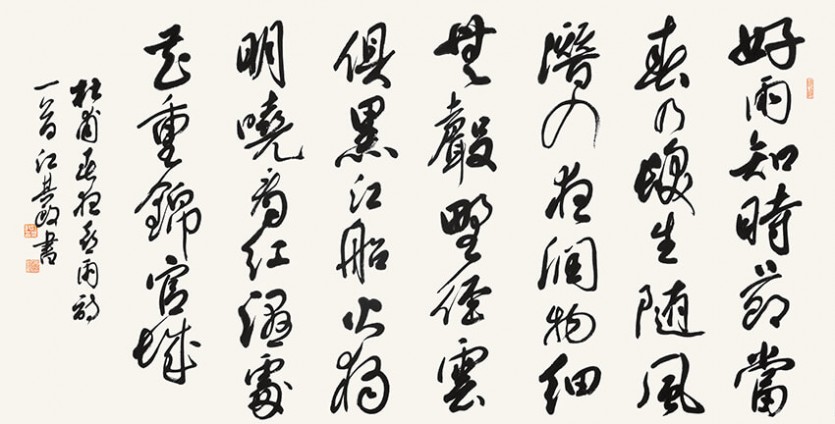 好雨知時節當
春乃發生随風
潛入夜潤物細
無聲野徑雲
俱黑江船火獨
明曉看紅濕處
花重錦官城
杜甫春夜喜雨詩
一首江書